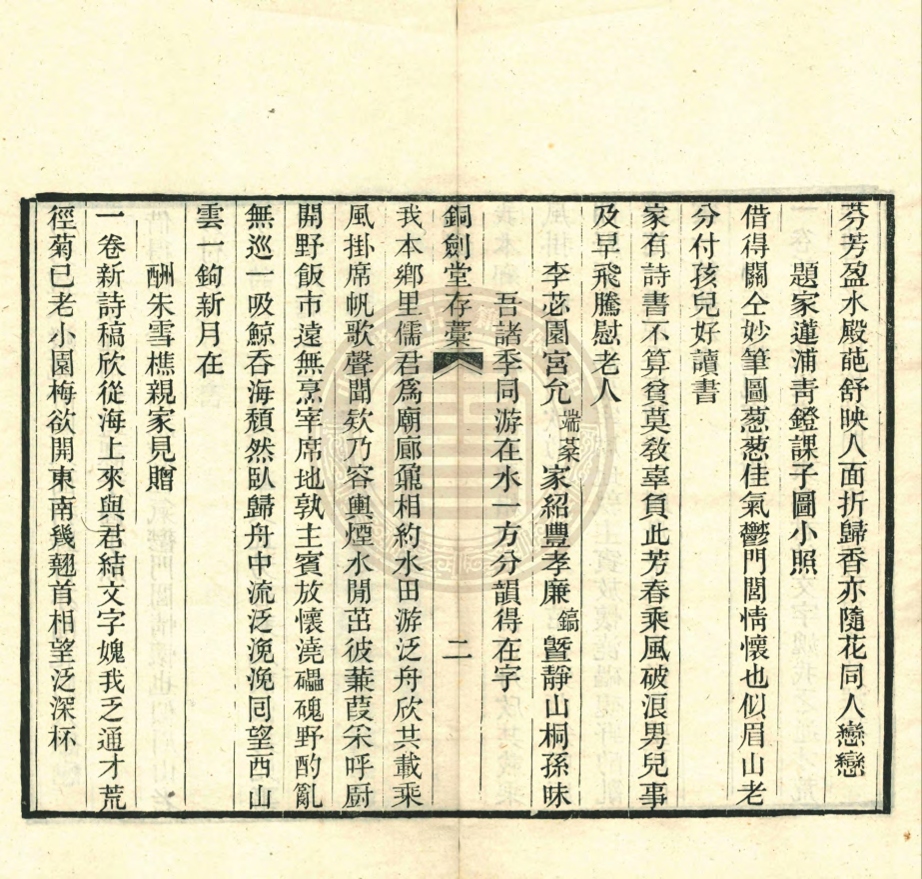 芬芳盈水殿葩舒映人面折歸香亦隨花同人戀戀
題家蓮浦青鐙課子圖小照
借得關仝妙筆圖葱葱佳氣鬱門閭情懷也似眉山老
分付孩兒好讀書
家有詩書不算貧莫敎辜負此芳春乘風破浪男兒事
及早飛騰慰老人
李苾園宮允端棻家紹豐孝廉鎬曁靜山桐孫昧
吾諸季同游在水一方分韻得在字
銅劍堂存藁 二
我本鄉里儒君爲廟廊鼐相約水田游泛舟欣共載乘
風掛席帆歌聲聞欸乃容輿煙水閒茁彼蒹葭采呼厨
開野飯市遠無烹宰席地孰主賓放懷澆礧磈野酌亂
無巡一吸鯨吞海頹然臥歸舟中流泛浼浼同望西山
雲一鉤新月在
酬朱雪樵親家見贈
一卷新詩稿欣從海上來與君結文字媿我乏通才荒
徑菊已老小園梅欲開東南幾翹首相望泛深杯